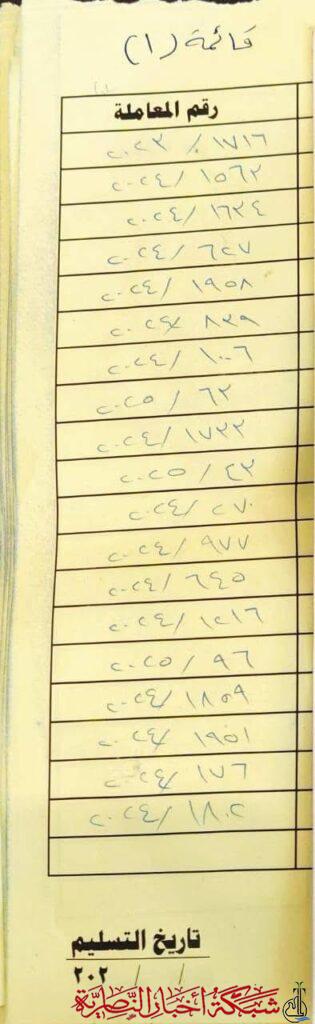 قائمة (١)
رقم المعاملة
١٧١٦ / ٢٠٢٣
١٥٦٢ / ٢٠٢٤
١٦٣٤ / ٢٠٢٤
٦٢٧ / ٢٠٢٤
١٩٥٨ / ٢٠٢٤
٨٣٩ / ٢٠٢٤
١٠٠٦ / ٢٠٢٤
٦٢ / ٢٠٢٥
١٧٣٢ / ٢٠٢٤
٢٣ / ٢٠٢٥
٢٧٠ / ٢٠٢٤
٩٧٧ / ٢٠٢٤
٦٤٥ / ٢٠٢٤
١٢١٦ / ٢٠٢٤
٩٦ / ٢٠٢٥
١٨٥٩ / ٢٠٢٤
١٩٥١ / ٢٠٢٤
١٧٦ / ٢٠٢٤
١٨٠٢ / ٢٠٢٤
تاريخ التسليم
/ / ٢٠٢
شبكة أخبار الناصرية